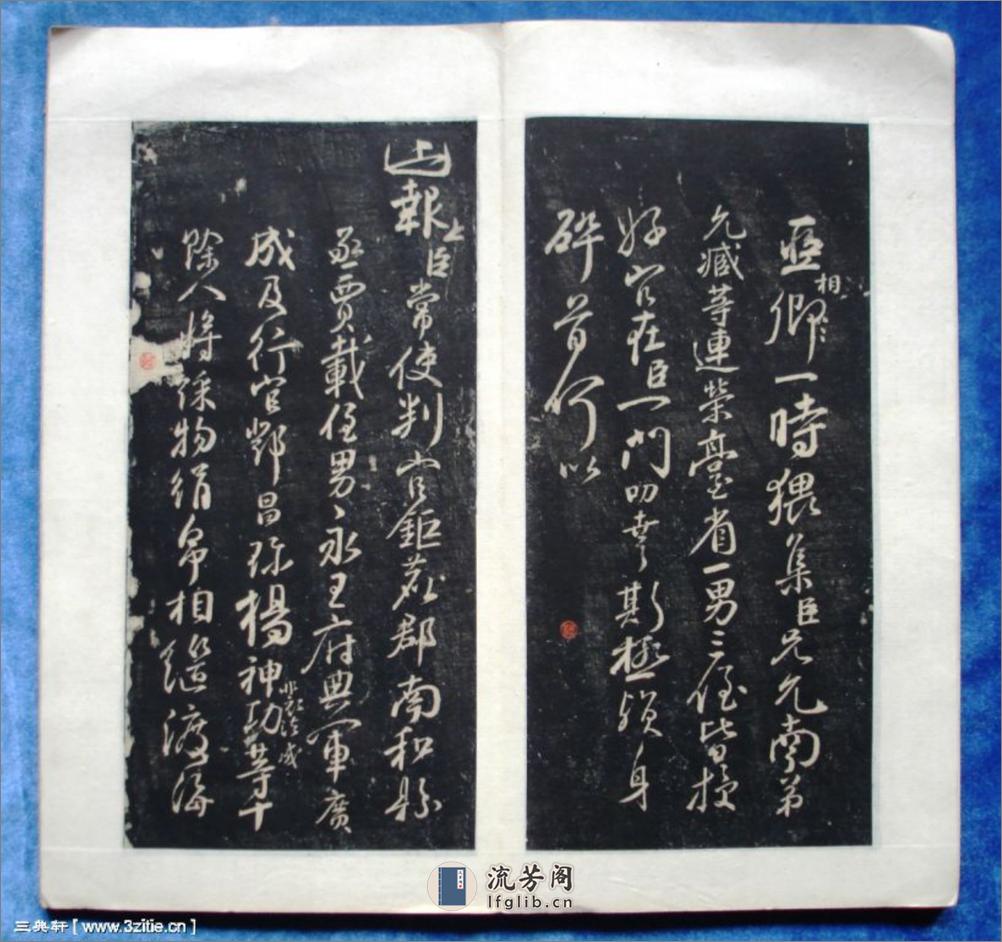 亞相卿一時猥集臣兄允南弟
允臧等連榮臺省一男三侄皆授
好官在臣一門叨幸斯極殞身
碎首何以
報上臣常使判官鉅鹿郡南和縣
丞賈載侄男永王府典軍廣
成及行官鄧昌珍楊神功等十
除人將綵物絹帛相繼渡海
流芳阁
lfglib.cn
三典轩【www.3zitie.cn】